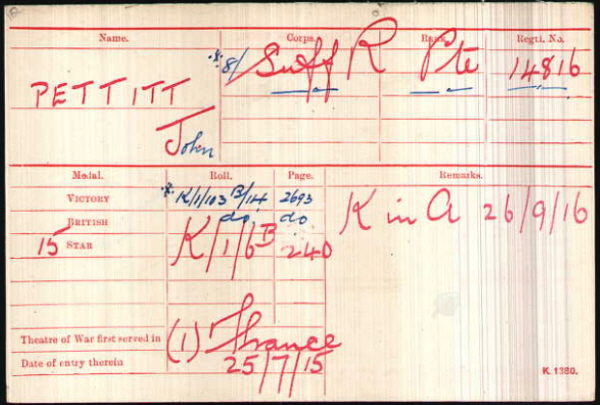 Name. Corps. Rank. Regtl. No.
*8/ Suff R Pte 14816
PETTITT
John
Medal. Roll. Page. Remarks.
VICTORY * K/1/103 B/14 2693
BRITISH do do K in A 26/9/16
15 STAR K/1/6 B 240
Theatre of War first served in (1) France
Date of entry therein 25/7/15
K. 1380.